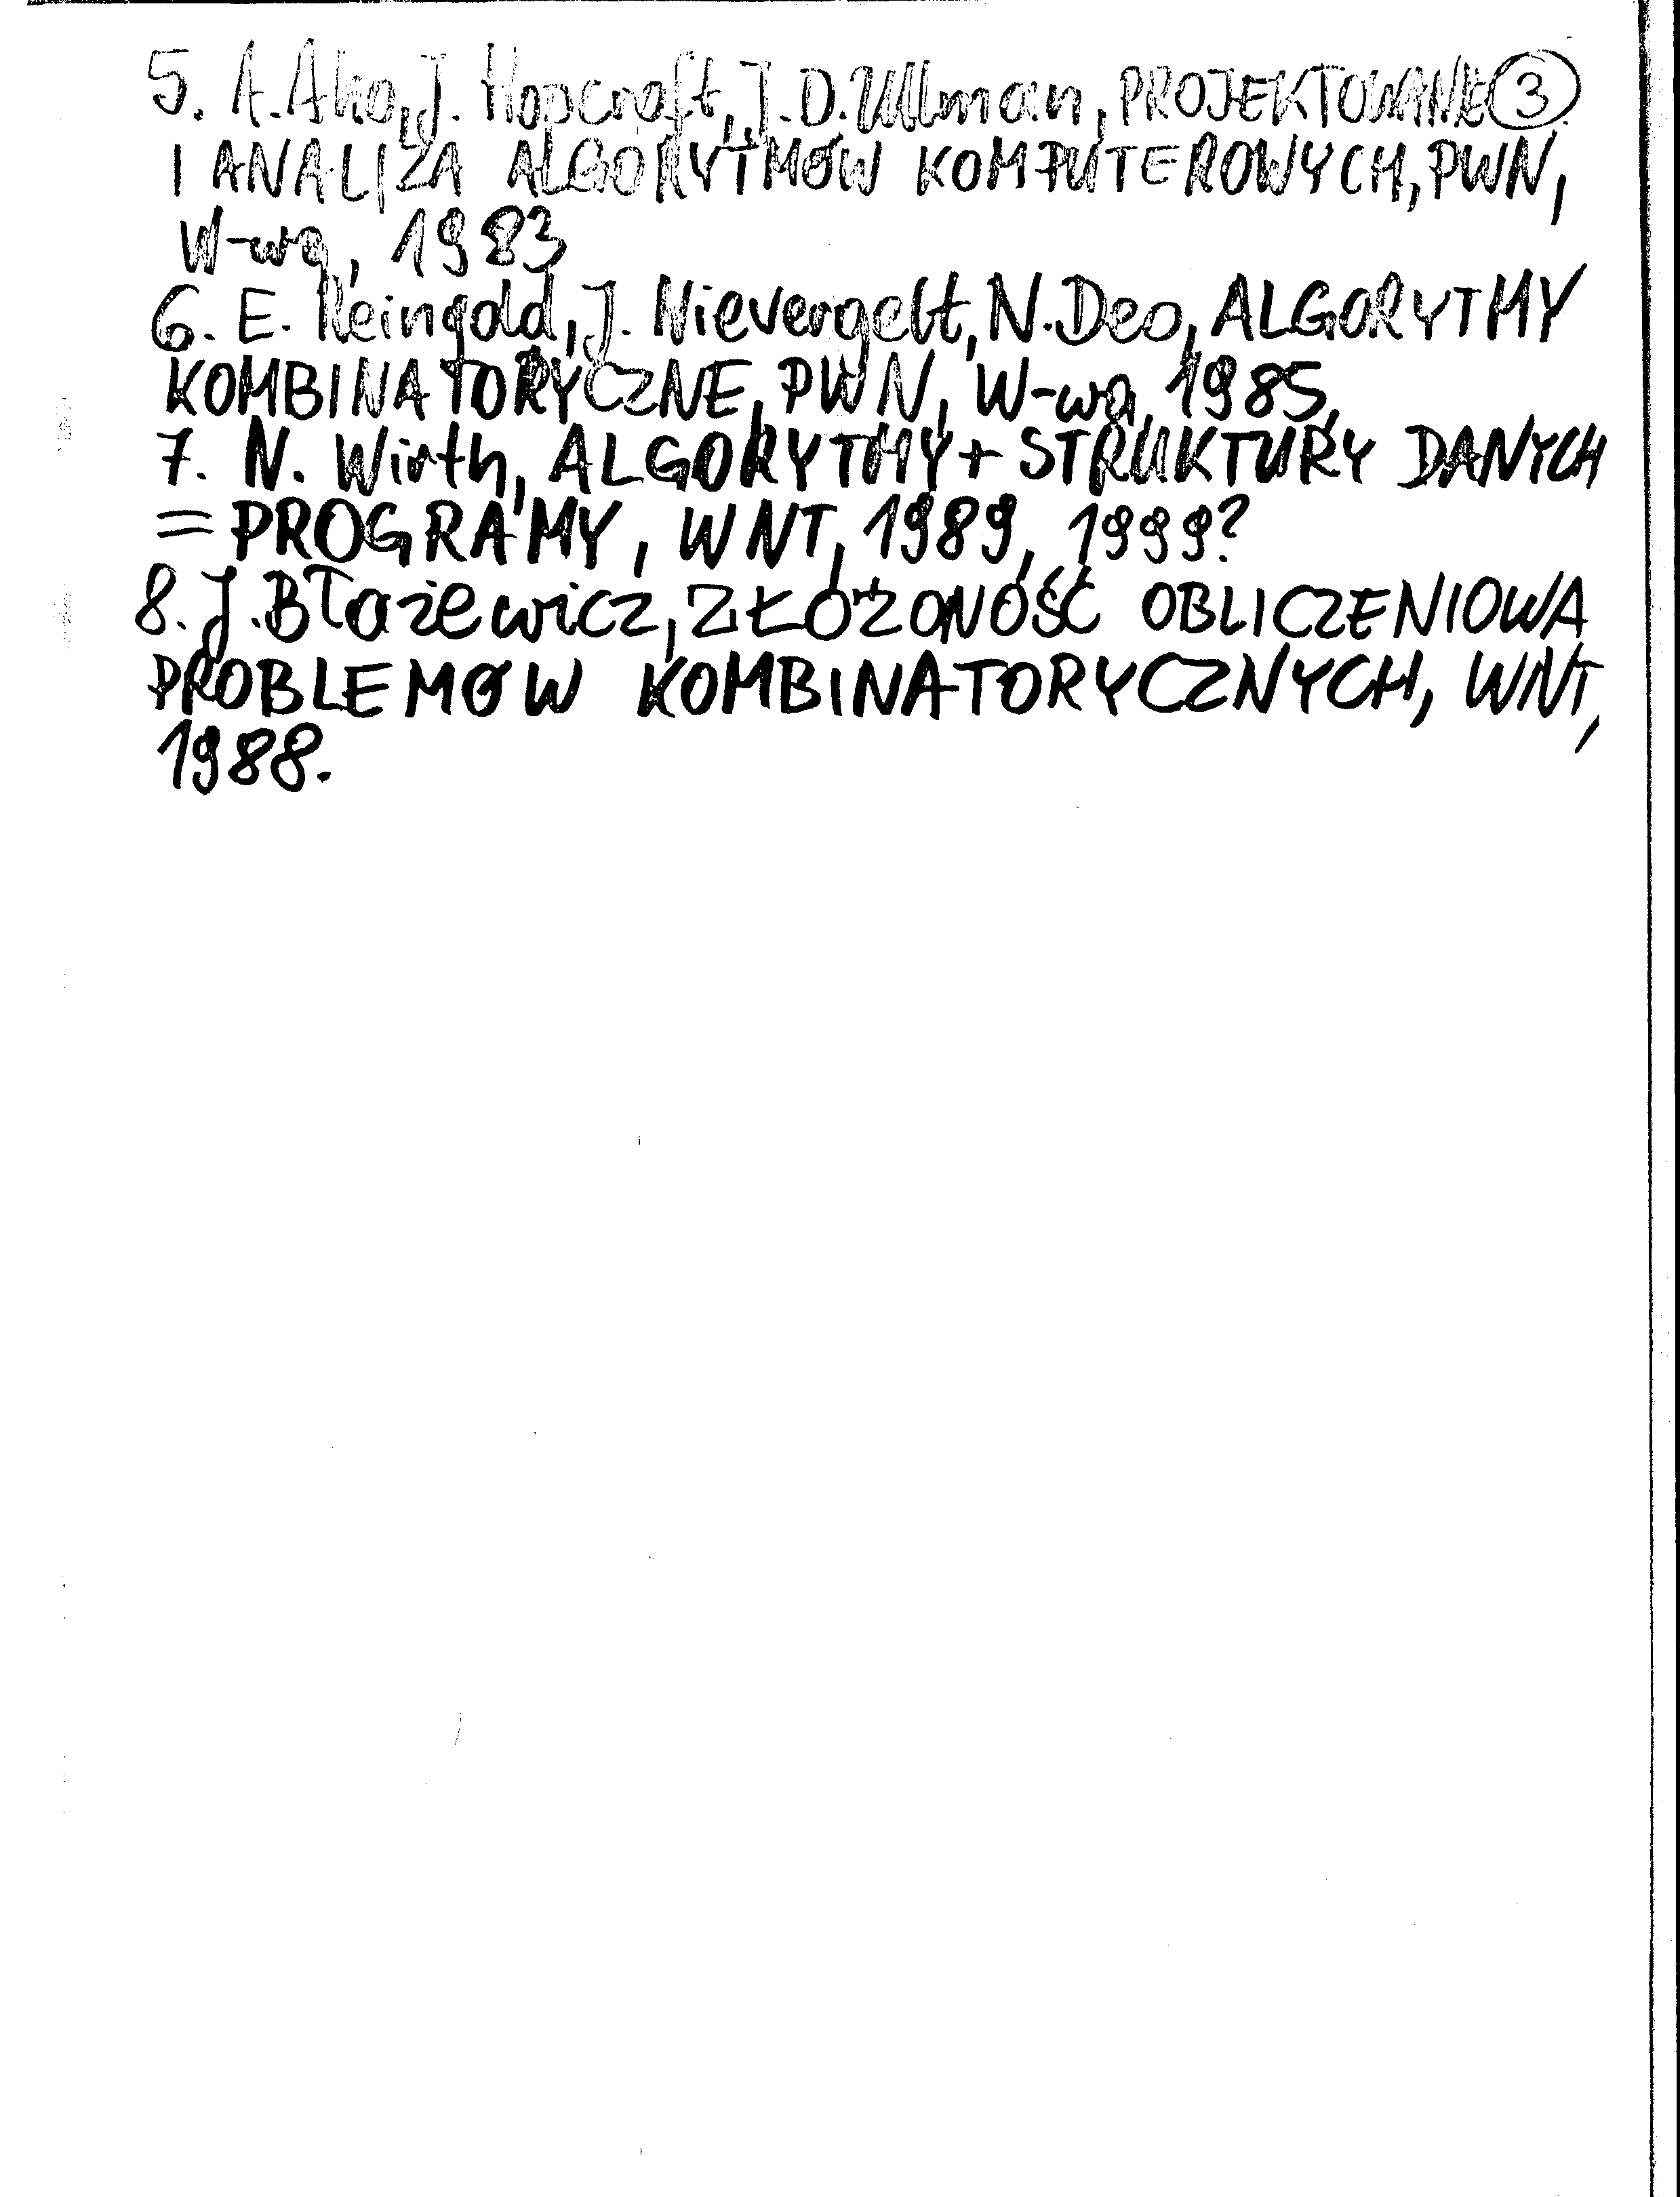 5. A. Aho, J. Hopcroft, J.D. Ullman, PROJEKTOWANIE ③
I ANALIZA ALGORYTMÓW KOMPUTEROWYCH, PWN,
W-wa, 1983
6. E. Reingold, J. Nievergelt, N. Deo, ALGORYTMY
KOMBINATORYCZNE, PWN, W-wa, 1985,
7. N. Wirth, ALGORYTMY + STRUKTURY DANYCH
= PROGRAMY, WNT, 1989, 1999?
8. J. Błażewicz, ZŁOŻONOŚĆ OBLICZENIOWA
PROBLEMÓW KOMBINATORYCZNYCH, WNT,
1988.